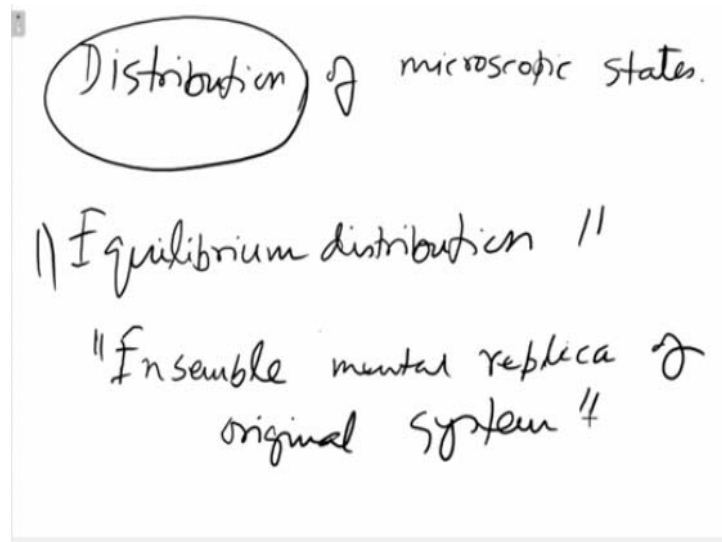 Distribution of microscopic states.
"Equilibrium distribution"
"Ensemble mental replica of
original system"